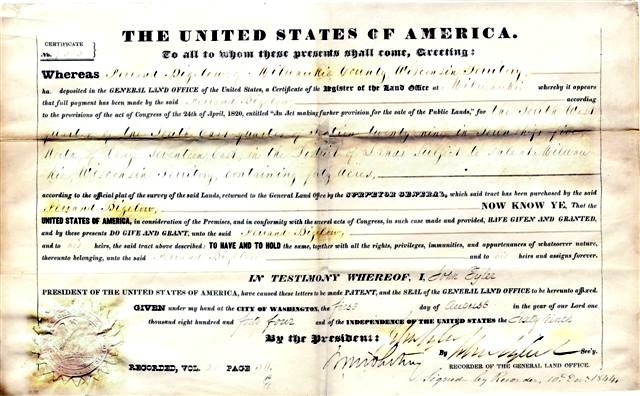 THE UNITED STATES OF AMERICA.
CERTIFICATE
No.
To all to whom these presents shall come, Greeting:
Whereas Bigelow of Milwaukie County Wisconsin Territory
ha deposited in the GENERAL LAND OFFICE of the United States, a Certificate of the Register of the Land Office at Milwaukie whereby it appears
that full payment has been made by the said Bigelow according
to the provisions of the act of Congress of the 24th of April, 1820, entitled "An Act making further provision for the sale of the Public Lands," for the South West
quarter of the South East quarter of Section twenty nine in Township five
North of Range Seventeen East in the District of Lands subject to sale at Milwau
kie Wisconsin Territory containing forty acres,
according to the official plat of the survey of the said Lands, returned to the General Land Office by the SURVEYOR GENERAL, which said tract has been purchased by the said
Bigelow, NOW KNOW YE, That the
UNITED STATES OF AMERICA, in consideration of the Premises, and in conformity with the several acts of Congress, in such case made and provided, HAVE GIVEN AND GRANTED,
and by these presents DO GIVE AND GRANT, unto the said Bigelow,
and to his heirs, the said tract above described: TO HAVE AND TO HOLD the same, together with all the rights, privileges, immunities, and appurtenances of whatsoever nature,
thereunto belonging, unto the said Bigelow and to his heirs and assigns forever.
IN TESTIMONY WHEREOF, I, John Tyler
PRESIDENT OF THE UNITED STATES OF AMERICA, have caused these letters to be made PATENT, and the SEAL of the GENERAL LAND OFFICE to be hereunto affixed.
GIVEN under my hand at the CITY OF WASHINGTON, the first day of August in the year of our Lord one
thousand eight hundred and forty four and of the INDEPENDENCE OF THE UNITED STATES the sixty ninth
By the President: John Tyler
By Sec'y.
RECORDED, VOL. PAGE RECORDER OF THE GENERAL LAND OFFICE.
Signed by Recorder, 10th Dec. 1844.